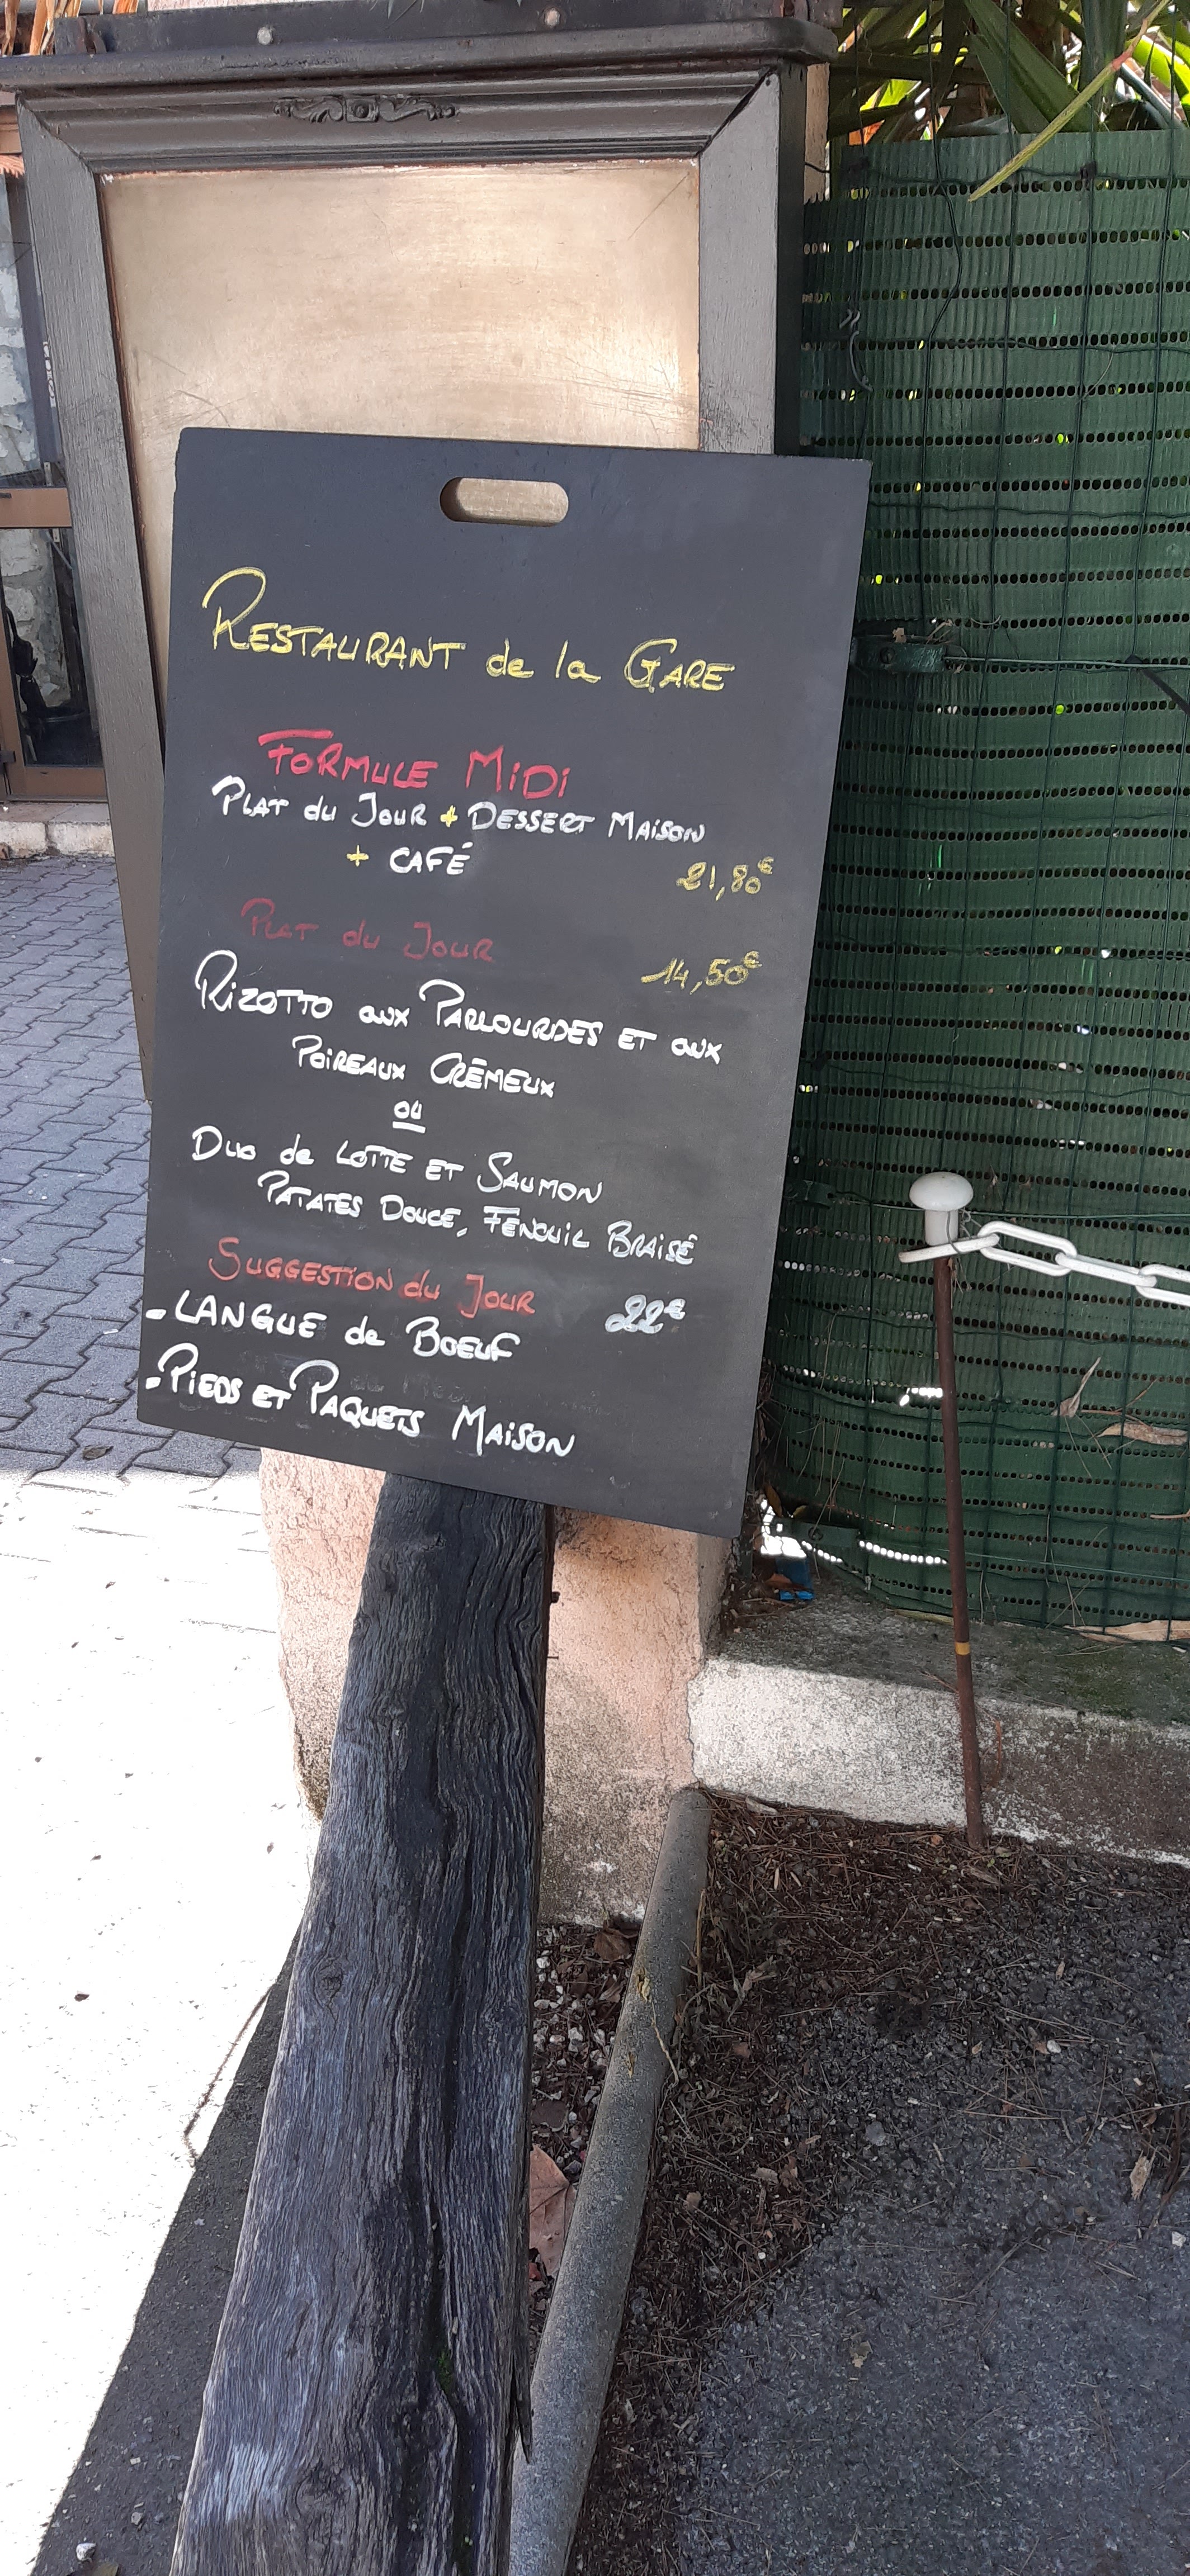 RESTAURANT de la GARE
FORMULE MiDi
PLAT du JOUR + DESSERT MAiSON
+ CAFÉ 21,80€
PLAT du JOUR 14,50€
RiZOTTO aux PARLOURDES ET aux
POiREAUX CRÉMEUX
ou
Duo de LOTTE ET SAUMON
PATATES DOUCE, FENOUiL BRAiSÉ
SUGGESTiON du JOUR 22€
- LANGUE de BOEUF
- PiEDS ET PAQUETS MAiSON